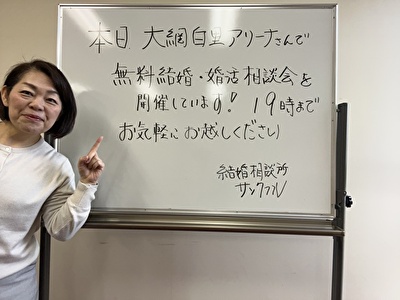 本日大網白里アリーナさんで
無料結婚・婚活相談会を
開催しています！19時まで
お気軽にお越しください！
結婚相談所
サンクフル